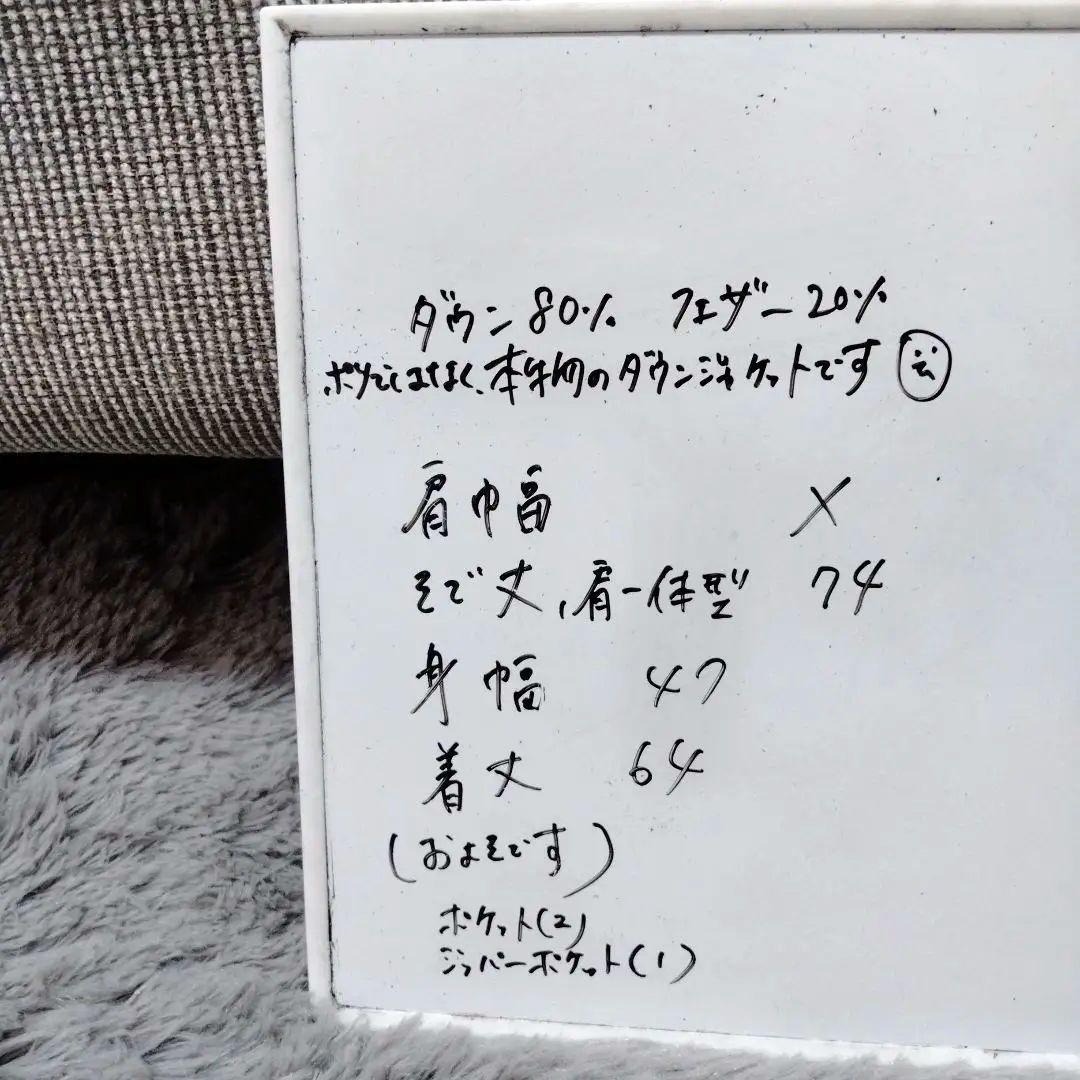 ダウン80% フェザー20%
ポリではなく、本物のダウンジャケットです
肩巾幅 X
そで丈、肩一体型 74
身幅 47
着丈 64
(およそです)
ポケット(2)
ジッパーポケット(1)